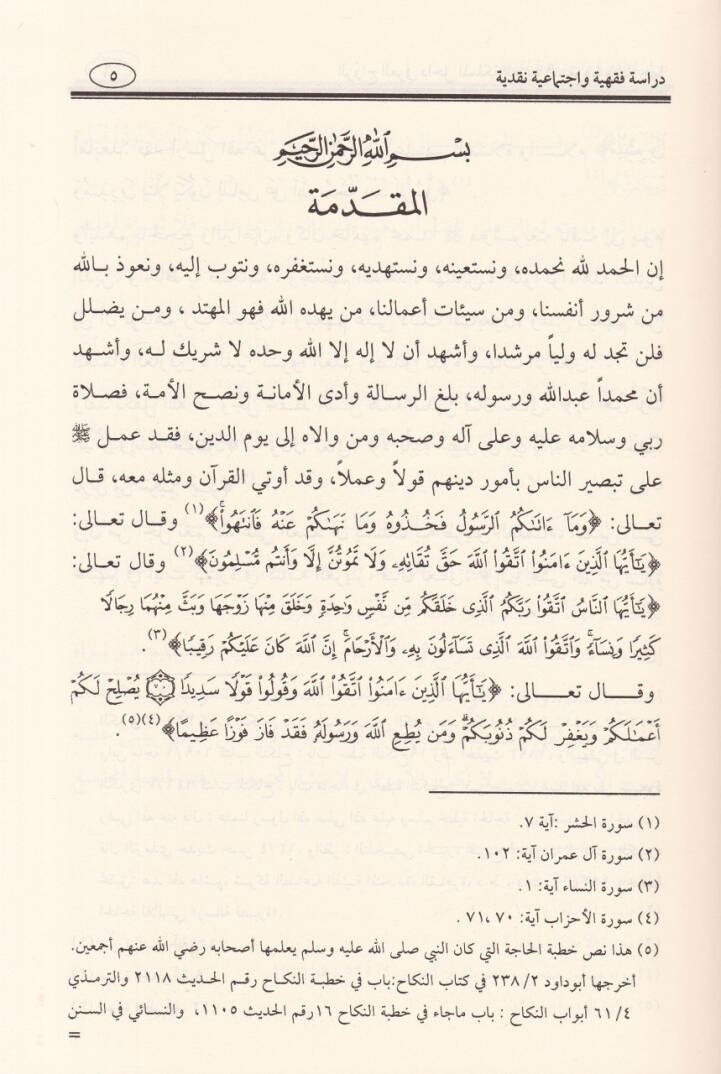 دراسة فقهية واجتماعية نقدية ٥
بسم الله الرحمن الرحيم
المقدّمة
إن الحمد لله نحمده، ونستعينه، ونستهديه، ونستغفره، ونتوب إليه، ونعوذ بالله
من شرور أنفسنا، ومن سيئات أعمالنا، من يهده الله فهو المهتد ، ومن يضلل
فلن تجد له ولياً مرشدا، وأشهد أن لا إله إلا الله وحده لا شريك له، وأشهد
أن محمداً عبدالله ورسوله، بلغ الرسالة وأدى الأمانة ونصح الأمة، فصلاة
ربي وسلامه عليه وعلى آله وصحبه ومن والاه إلى يوم الدين، فقد عمل ﷺ
على تبصير الناس بأمور دينهم قولاً وعملاً، وقد أوتي القرآن ومثله معه، قال
تعالى: ﴿وَمَآ ءَاتَىٰكُمُ ٱلرَّسُولُ فَخُذُوهُ وَمَا نَهَىٰكُمْ عَنْهُ فَٱنتَهُوا۟ۚ﴾(١) وقال تعالى:
﴿يَٰٓأَيُّهَا ٱلَّذِينَ ءَامَنُوا۟ ٱتَّقُوا۟ ٱللَّهَ حَقَّ تُقَاتِهِۦ وَلَا تَمُوتُنَّ إِلَّا وَأَنتُم مُّسْلِمُونَ﴾(٢) وقال تعالى:
﴿يَٰٓأَيُّهَا ٱلنَّاسُ ٱتَّقُوا۟ رَبَّكُمُ ٱلَّذِى خَلَقَكُم مِّن نَّفْسٍ وَٰحِدَةٍ وَخَلَقَ مِنْهَا زَوْجَهَا وَبَثَّ مِنْهُمَا رِجَالًا
كَثِيرًا وَنِسَآءًۚ وَٱتَّقُوا۟ ٱللَّهَ ٱلَّذِى تَسَآءَلُونَ بِهِۦ وَٱلْأَرْحَامَۚ إِنَّ ٱللَّهَ كَانَ عَلَيْكُمْ رَقِيبًا﴾(٣).
وقال تعالى: ﴿يَٰٓأَيُّهَا ٱلَّذِينَ ءَامَنُوا۟ ٱتَّقُوا۟ ٱللَّهَ وَقُولُوا۟ قَوْلًا سَدِيدًا ۝٧٠ يُصْلِحْ لَكُمْ
أَعْمَٰلَكُمْ وَيَغْفِرْ لَكُمْ ذُنُوبَكُمْۗ وَمَن يُطِعِ ٱللَّهَ وَرَسُولَهُۥ فَقَدْ فَازَ فَوْزًا عَظِيمًا﴾(٤)(٥).
(١) سورة الحشر :آية ٧.
(٢) سورة آل عمران آية: ١٠٢.
(٣) سورة النساء آية: ١.
(٤) سورة الأحزاب آية: ٧٠ ،٧١.
(٥) هذا نص خطبة الحاجة التي كان النبي صلى الله عليه وسلم يعلمها أصحابه رضي الله عنهم أجمعين.
أخرجها أبوداود ٢٣٨/٢ في كتاب النكاح:باب في خطبة النكاح رقم الحديث ٢١١٨ والترمذي
٦١/٤ أبواب النكاح : باب ماجاء في خطبة النكاح ١٦رقم الحديث ١١٠٥، والنسائي في السنن
=